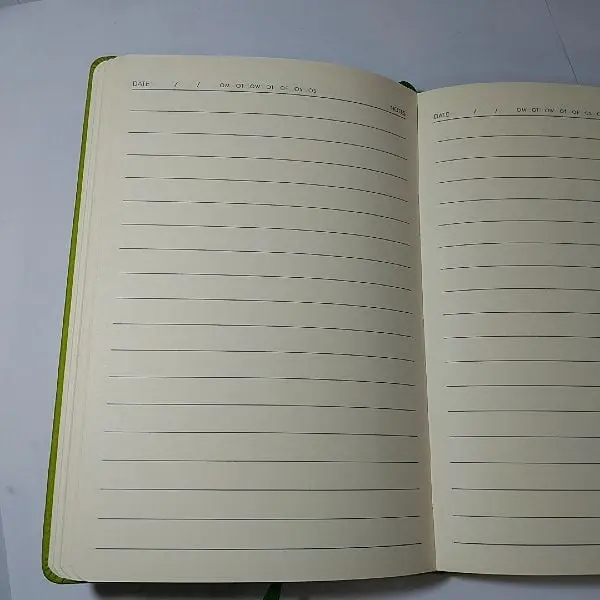 DATE / / OM OT OW OT OF OS OS
NOTES
DATE / / OM OT OW OT OF OS